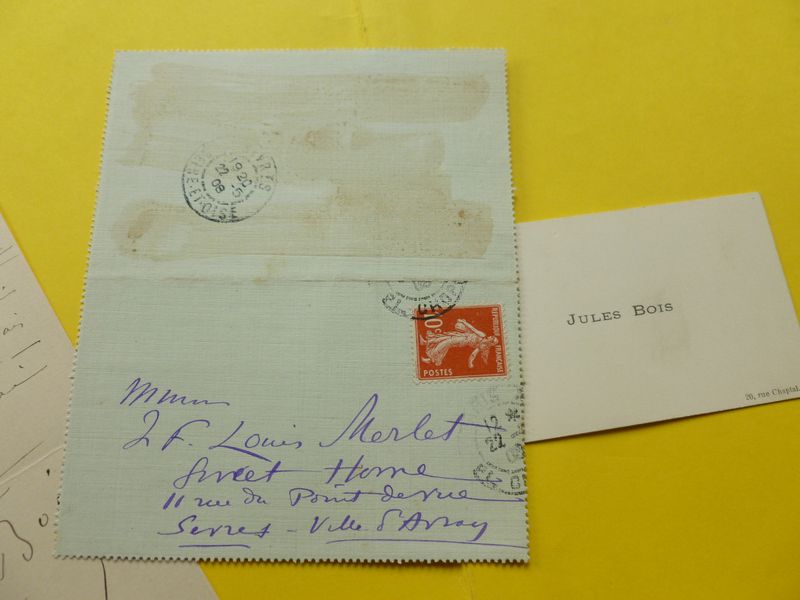 19 20
22 - 5
08
SEINE-ET-OISE
CHOP
10
RÉPUBLIQUE FRANÇAISE
POSTES
J F. Louis Merlet
Sweet Home
11 rue du Point de vue
Sevres - Ville d'Avray
12 *
22
JULES BOIS
20, rue Chaptal.